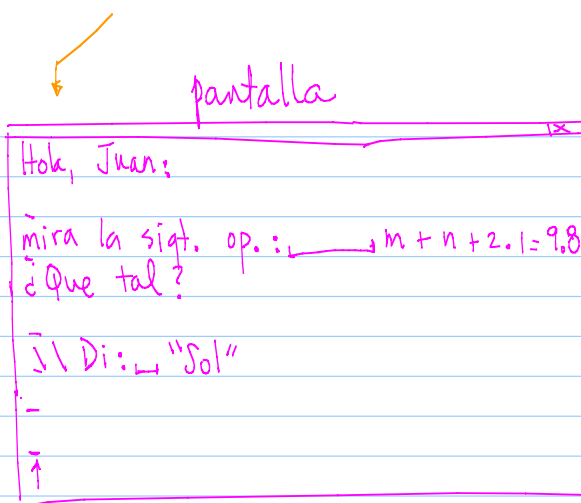 pantalla
x
Hola, Juan:
mira la sigt. op.: m + n + 2.1 = 9.8
¿Que tal?
\\ Di: "Sol"